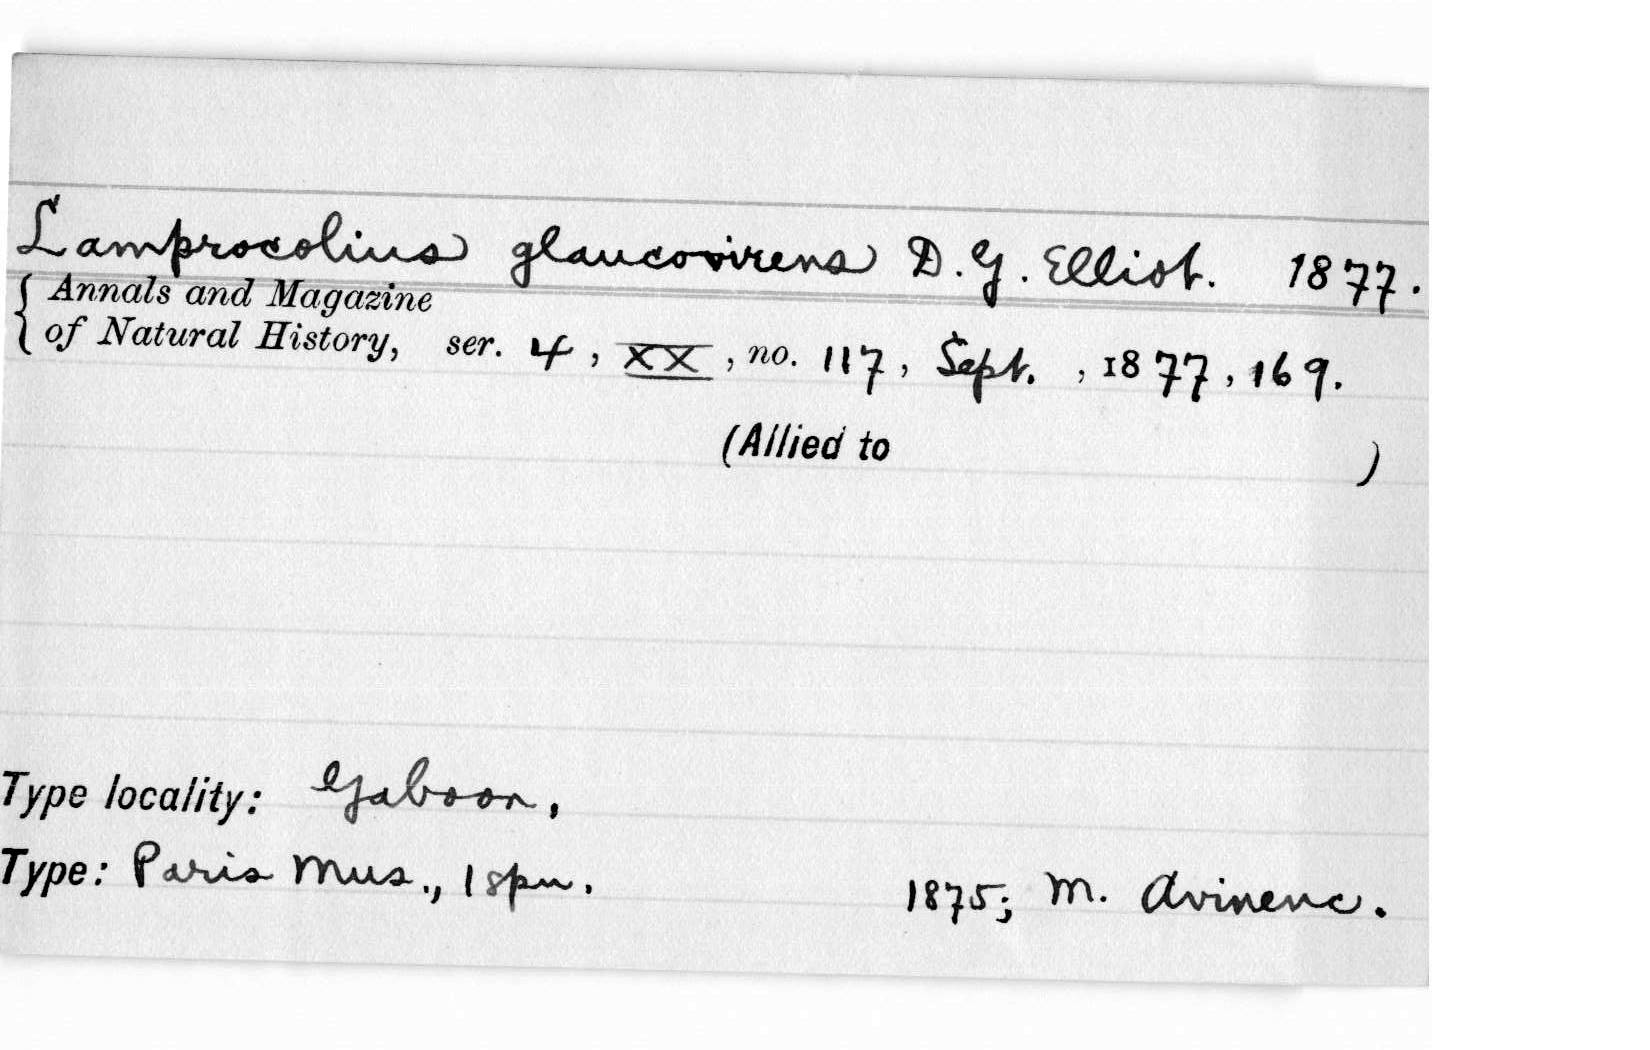 Lamprocolius glaucovirens D. G. Elliot. 1877.
{ Annals and Magazine
of Natural History, ser. 4, XX, no. 117, Sept. , 1877, 169.
(Allied to )
Type locality: Gaboon,
Type: Paris Mus., 1 spn. 1875; M. Avinenc.